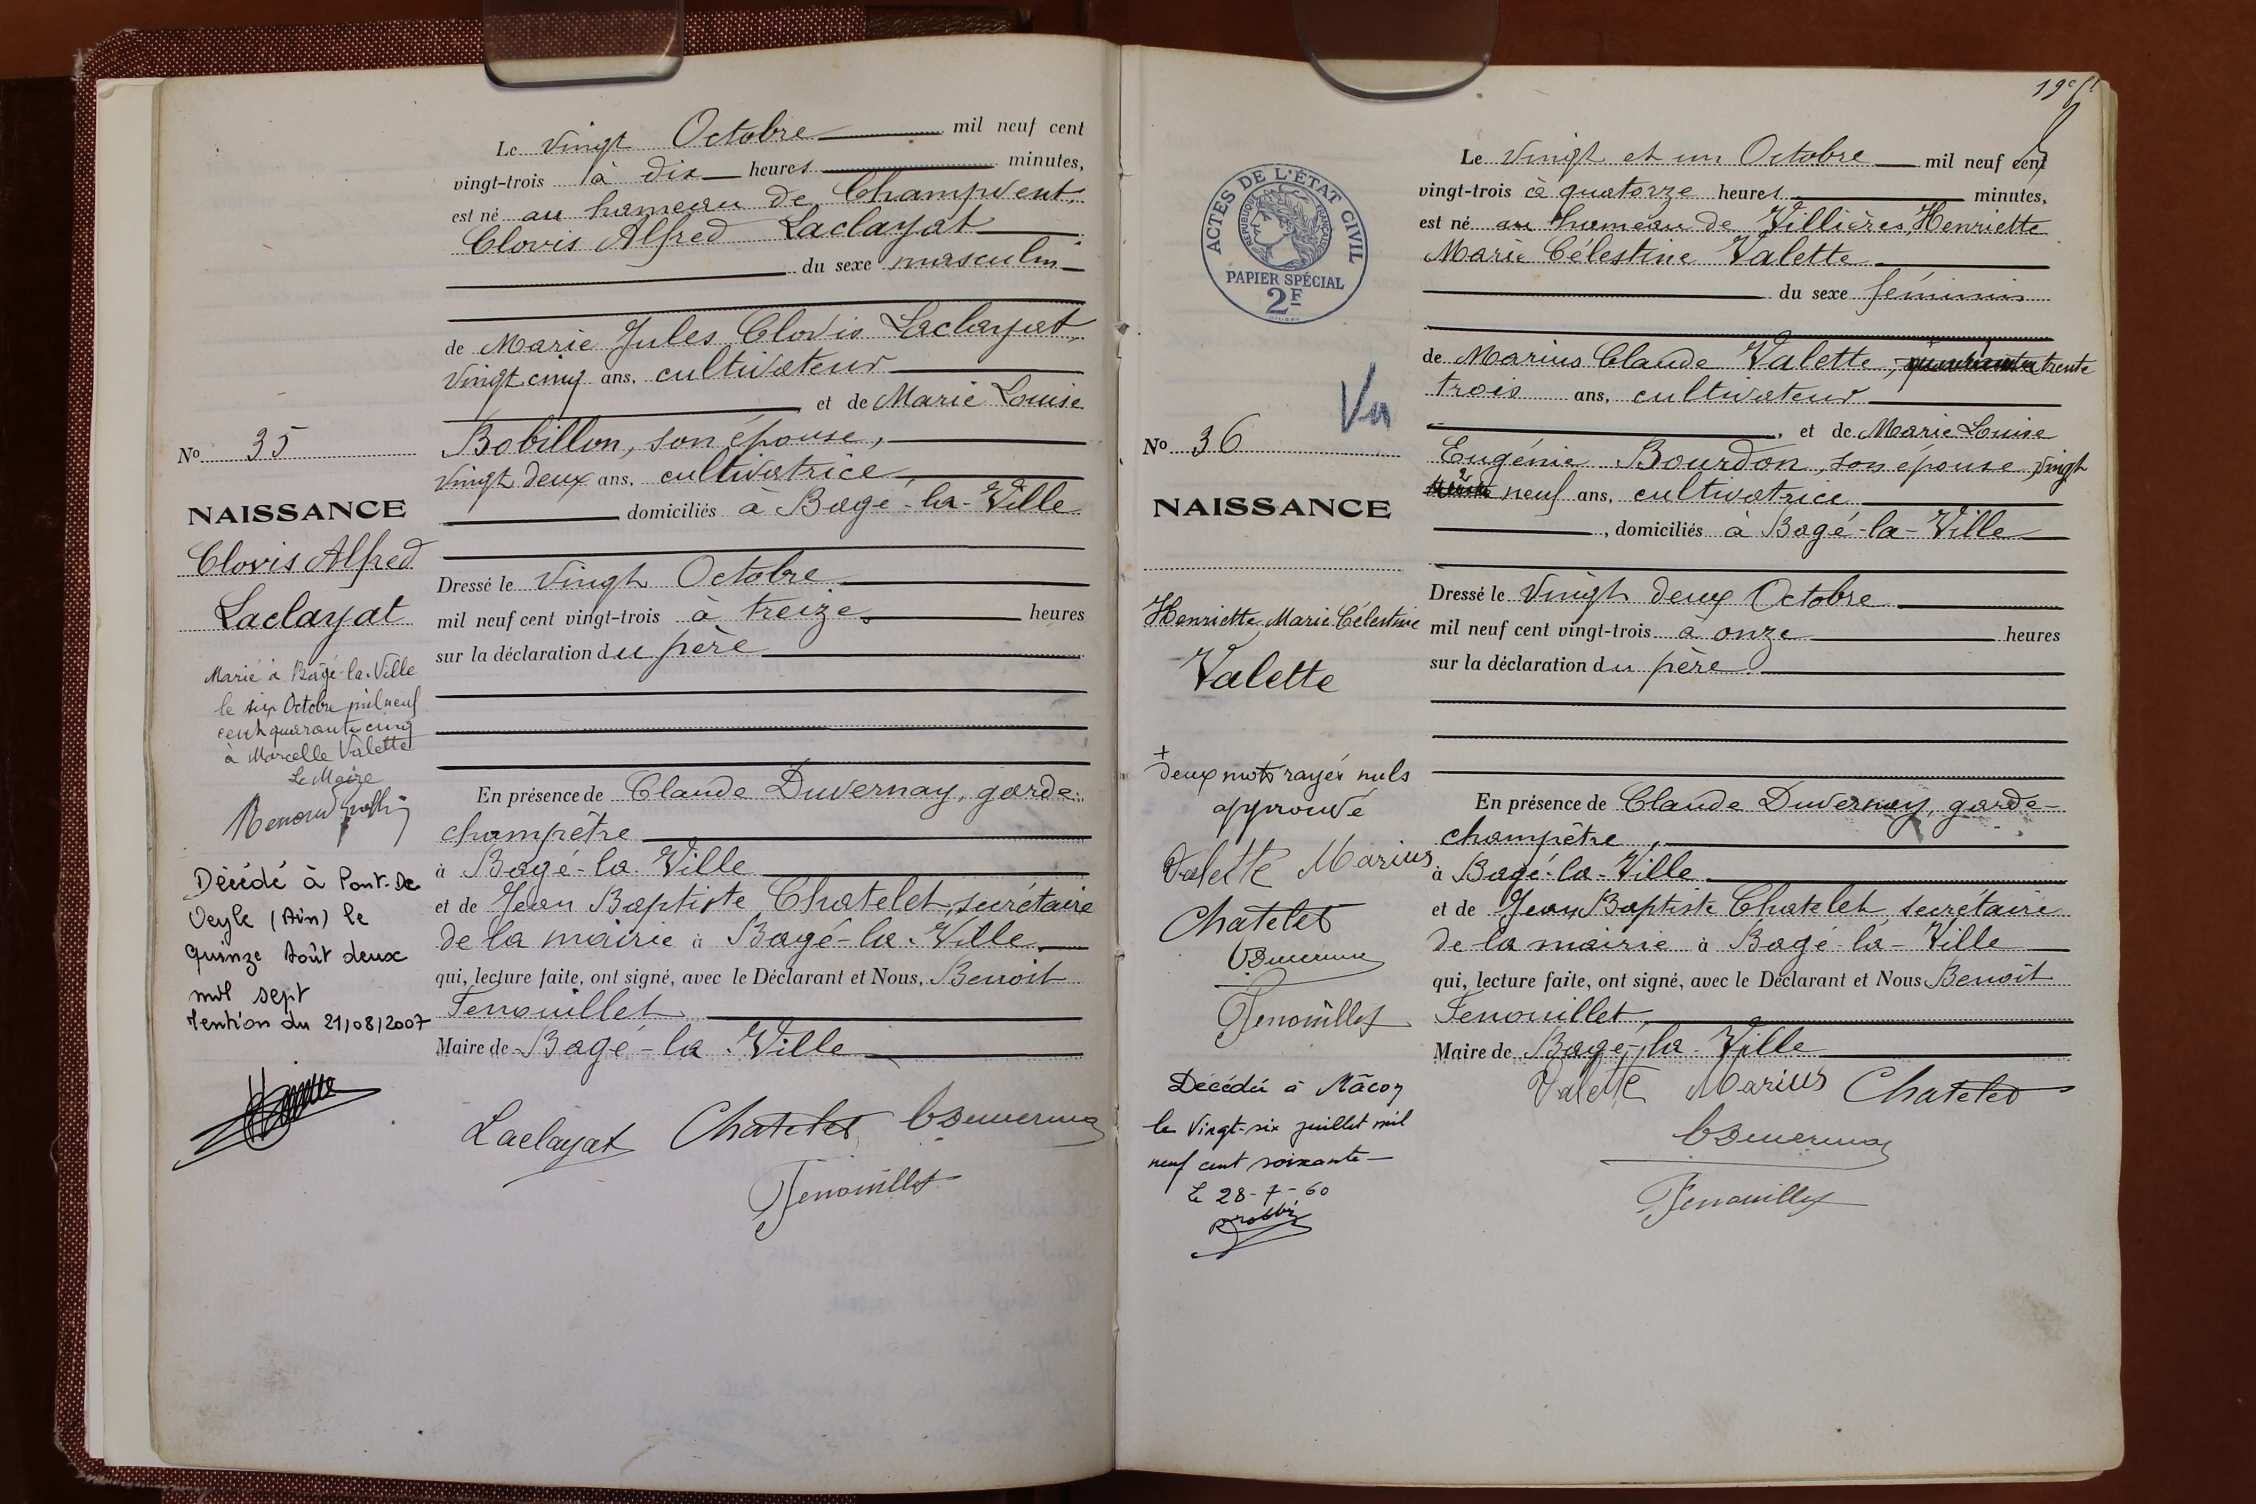 Le vingt Octobre mil neuf cent
vingt-trois à dix heures minutes,
est né au hameau de Champvent,
Clovis Alfred Laclayat
du sexe masculin
de Marie Jules Clovis Laclayat,
vingt cinq ans, cultivateur
et de Marie Louise
Bobillon, son épouse,
vingt deux ans, cultivatrice
domiciliés à Bagé-la-Ville
Dressé le vingt Octobre
mil neuf cent vingt-trois à treize heures
sur la déclaration du père
En présence de Claude Duvernay, garde-
champêtre
à Bagé-la-Ville
et de Jean Baptiste Chatelet, secrétaire
de la mairie à Bagé-la-Ville
qui, lecture faite, ont signé, avec le Déclarant et Nous, Benoit
Fenouillet
Maire de Bagé-la-Ville
Laclayat Chatelet CDuvernay
Fenouillet
No 35
NAISSANCE
Clovis Alfred
Laclayat
Marié à Bagé-la-Ville
le six Octobre mil neuf
cent quarante cinq
à Marcelle Valette
Le Maire
Décédé à Pont-De
Veyle (Ain) le
quinze Août deux
mil sept
Mention du 21/08/2007
19e ft
ACTES DE L'ÉTAT CIVIL
RÉPUBLIQUE FRANÇAISE
PAPIER SPÉCIAL
2F
Vu
Le vingt et un Octobre mil neuf cent
vingt-trois à quatorze heures minutes,
est né au hameau de Villières, Henriette
Marie Célestine Valette
du sexe féminin
de Marius Claude Valette, trente
trois ans, cultivateur
, et de Marie Louise
Eugénie Bourdon, son épouse, vingt
neuf ans, cultivatrice
, domiciliés à Bagé-la-Ville
Dressé le vingt deux Octobre
mil neuf cent vingt-trois à onze heures
sur la déclaration du père
En présence de Claude Duvernay, garde-
champêtre,
à Bagé-la-Ville
et de Jean Baptiste Chatelet, secrétaire
de la mairie à Bagé-la-Ville
qui, lecture faite, ont signé, avec le Déclarant et Nous Benoît
Fenouillet
Maire de Bagé-la-Ville
Valette Marius Chatelet
CDuvernay
Fenouillet
No 36
NAISSANCE
Henriette Marie Célestine
Valette
+
deux mots rayés nuls
approuvé
Valette Marius
Chatelet
CDuvernay
Fenouillet
Décédée à Mâcon
le Vingt-six juillet mil
neuf cent soixante
le 28-7-60